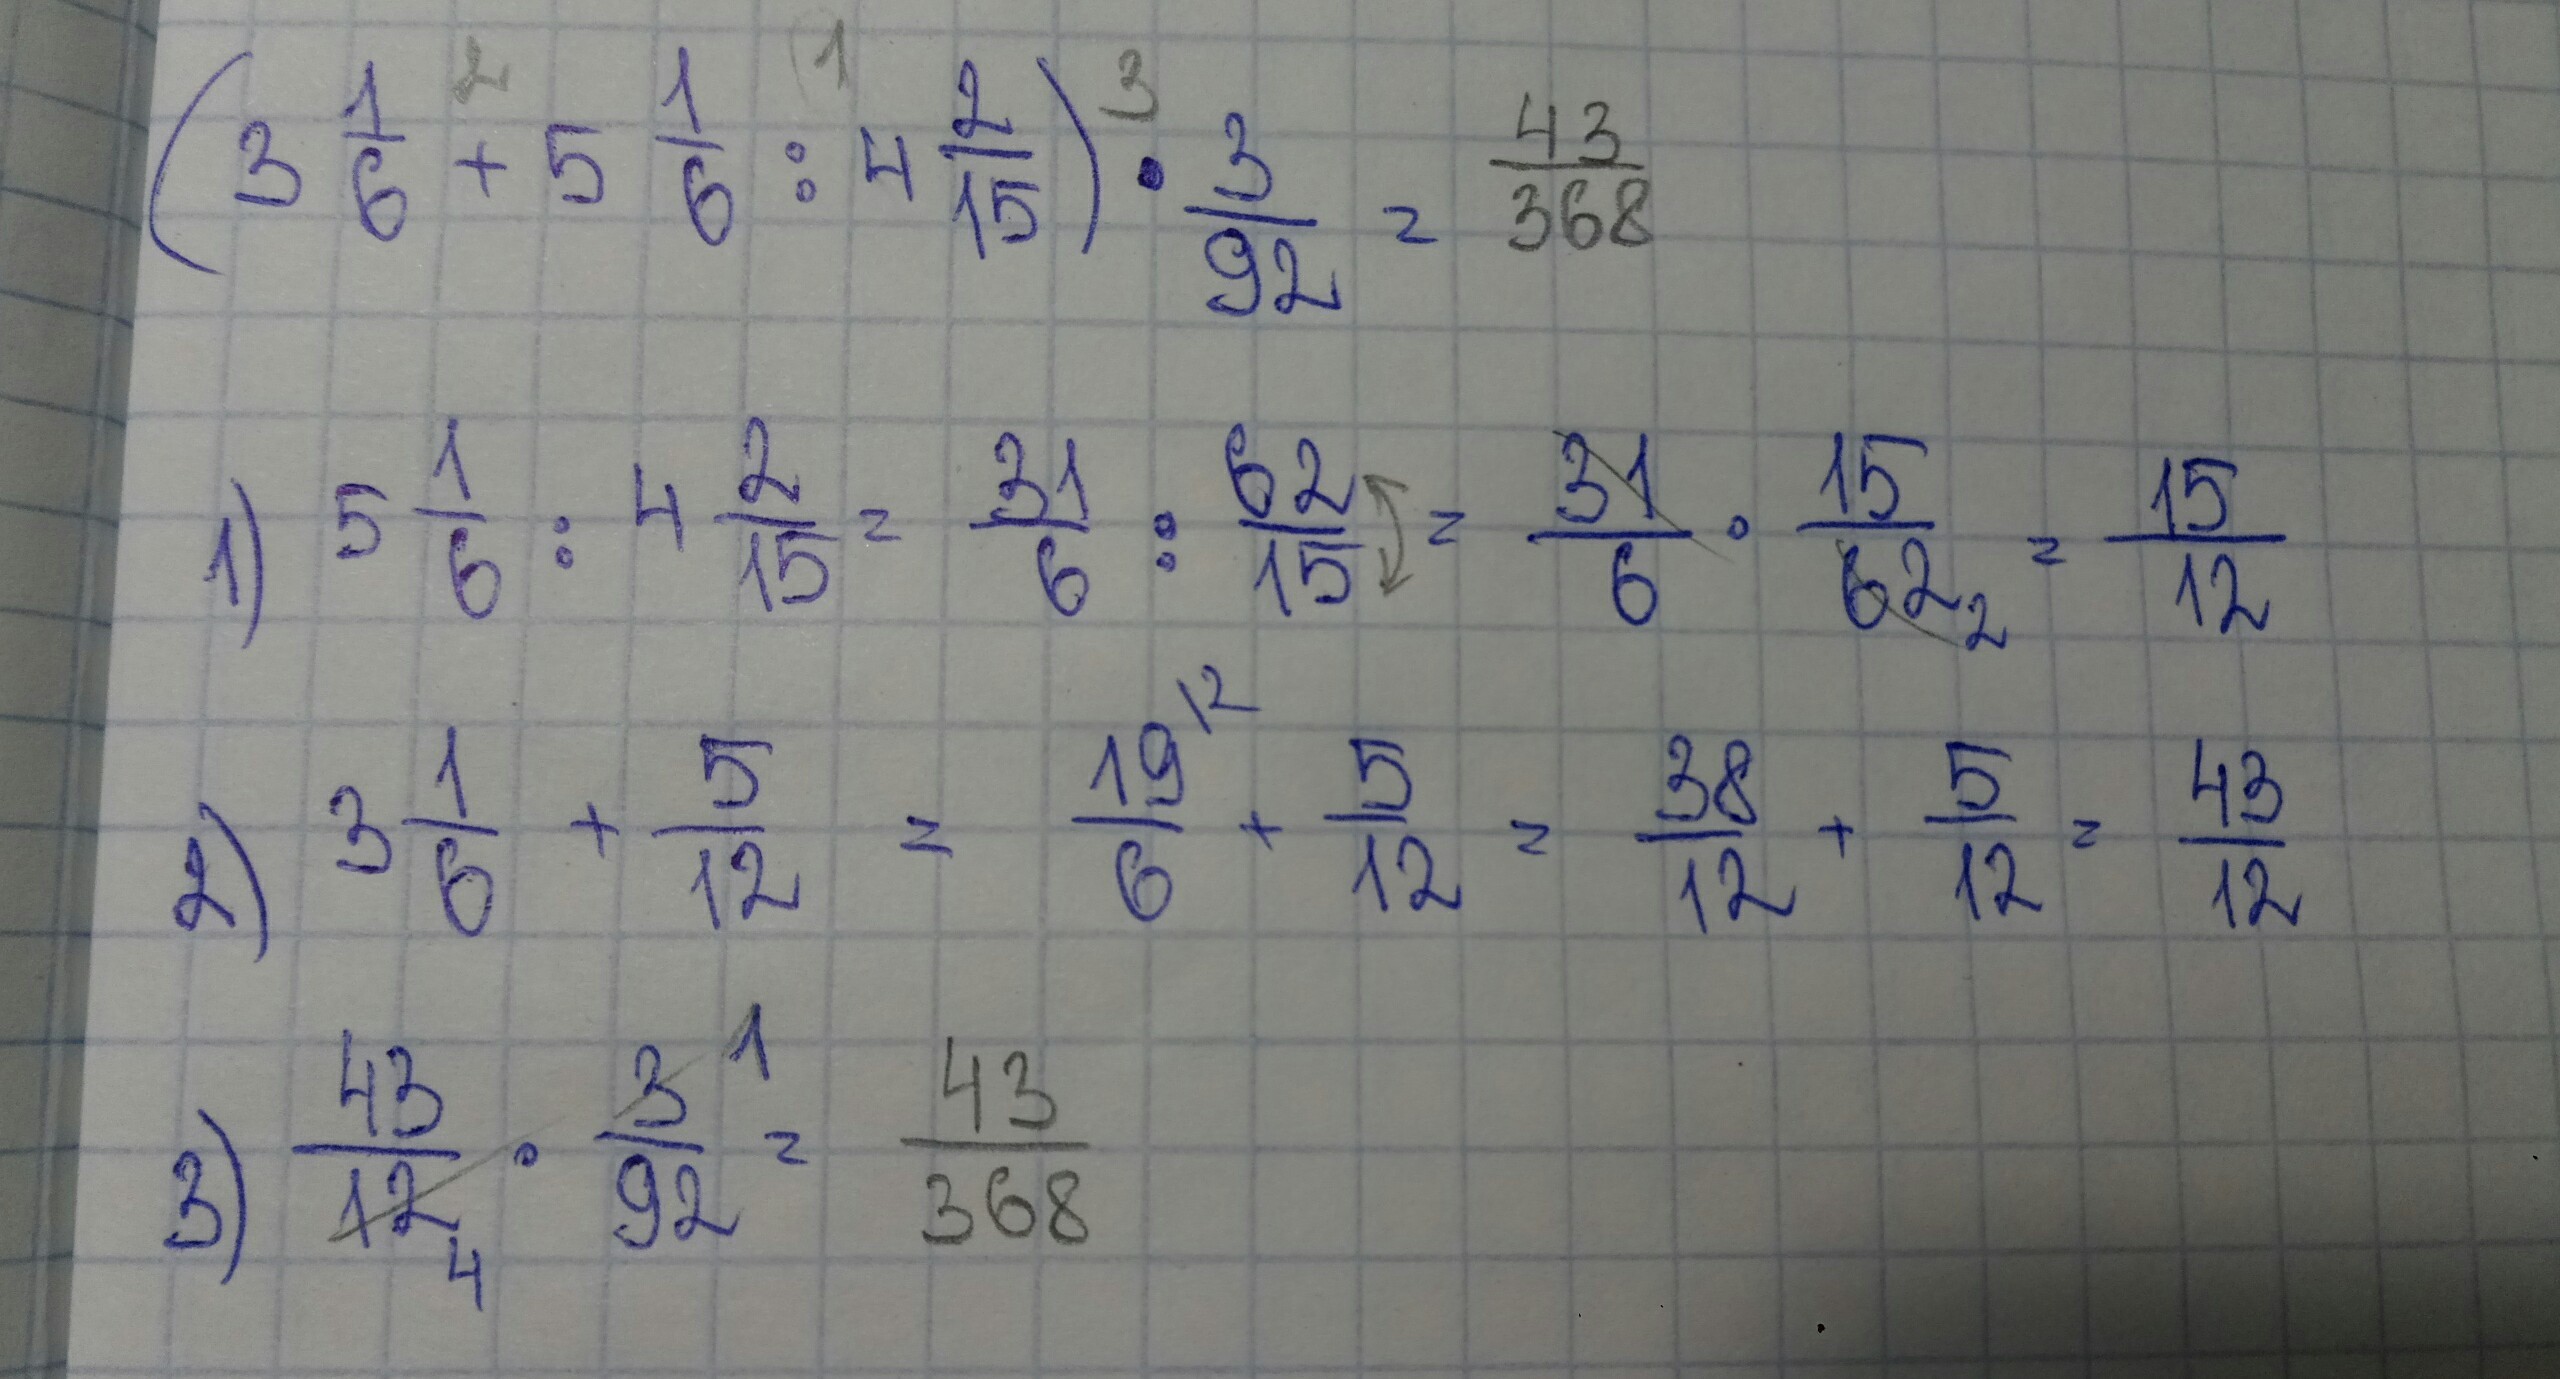 (3 1/6 + 5 1/6 : 4 2/15) · 3/92 = 43/368
1) 5 1/6 : 4 2/15 = 31/6 : 62/15 = 31/6 · 15/62 2 = 15/12
2) 3 1/6 + 5/12 = 19/6 12 + 5/12 = 38/12 + 5/12 = 43/12
3) 43/12 4 · 3/92 1 = 43/368